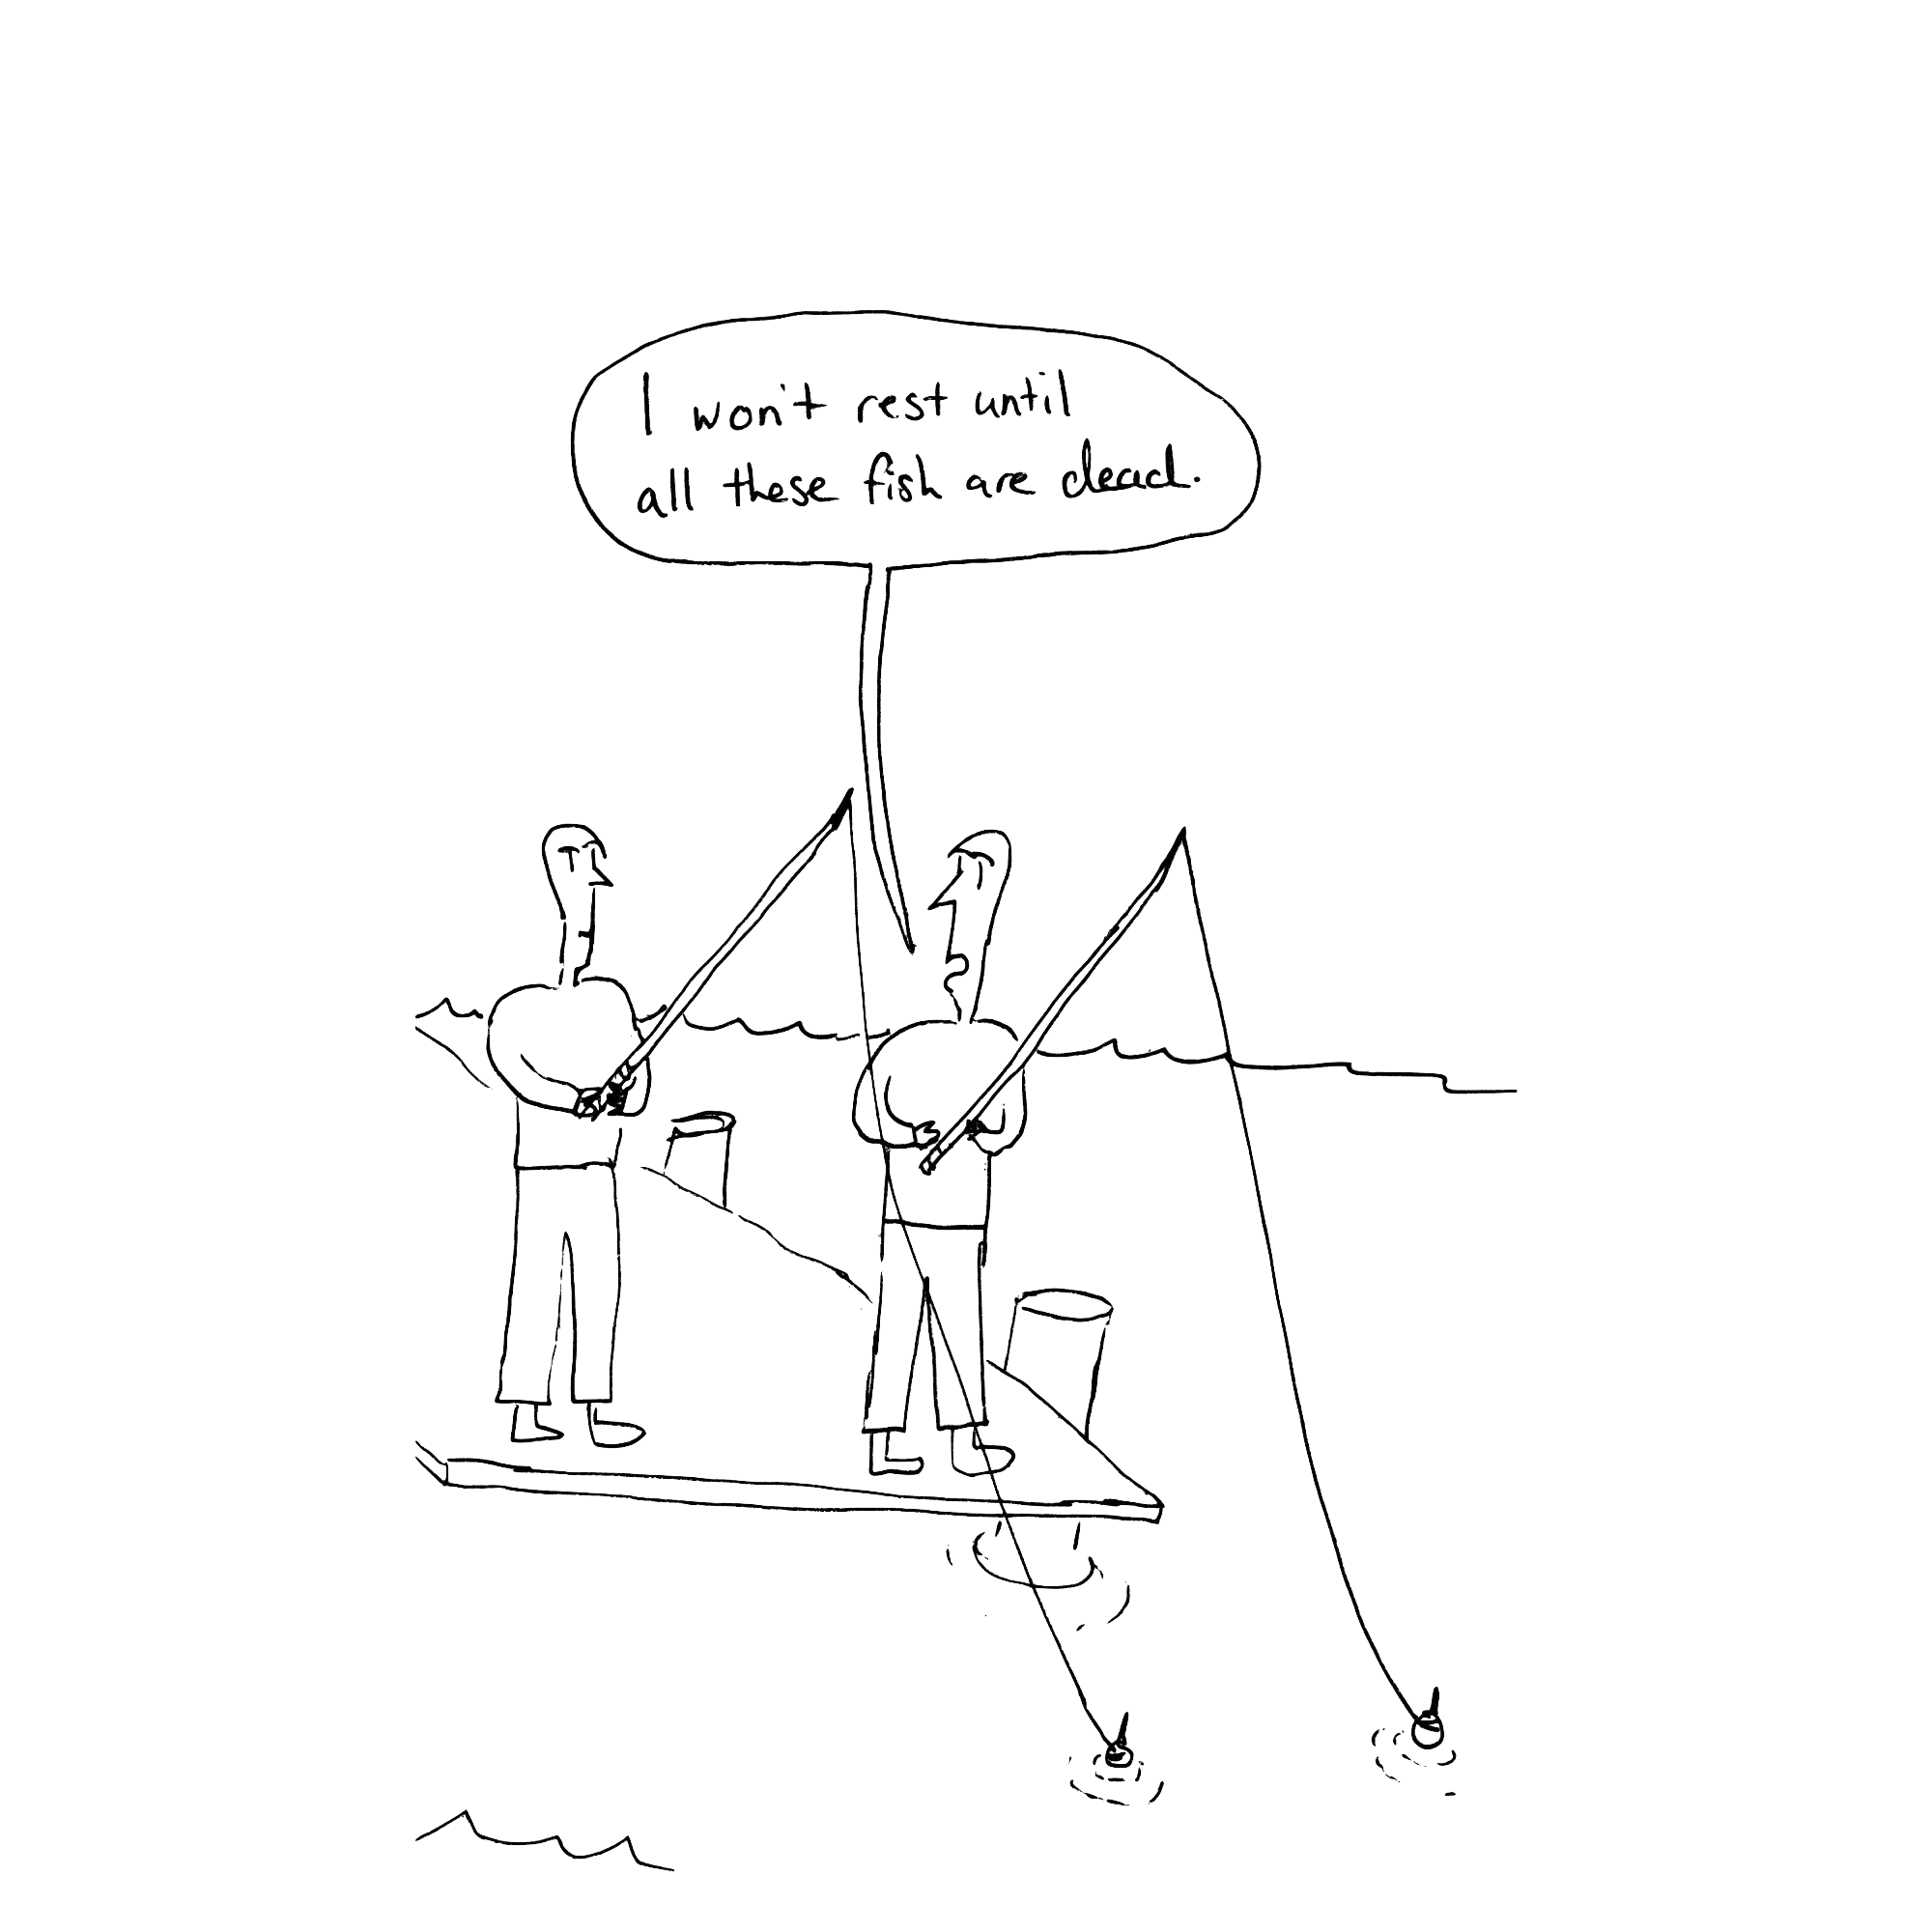 I won't rest until
all these fish are dead.